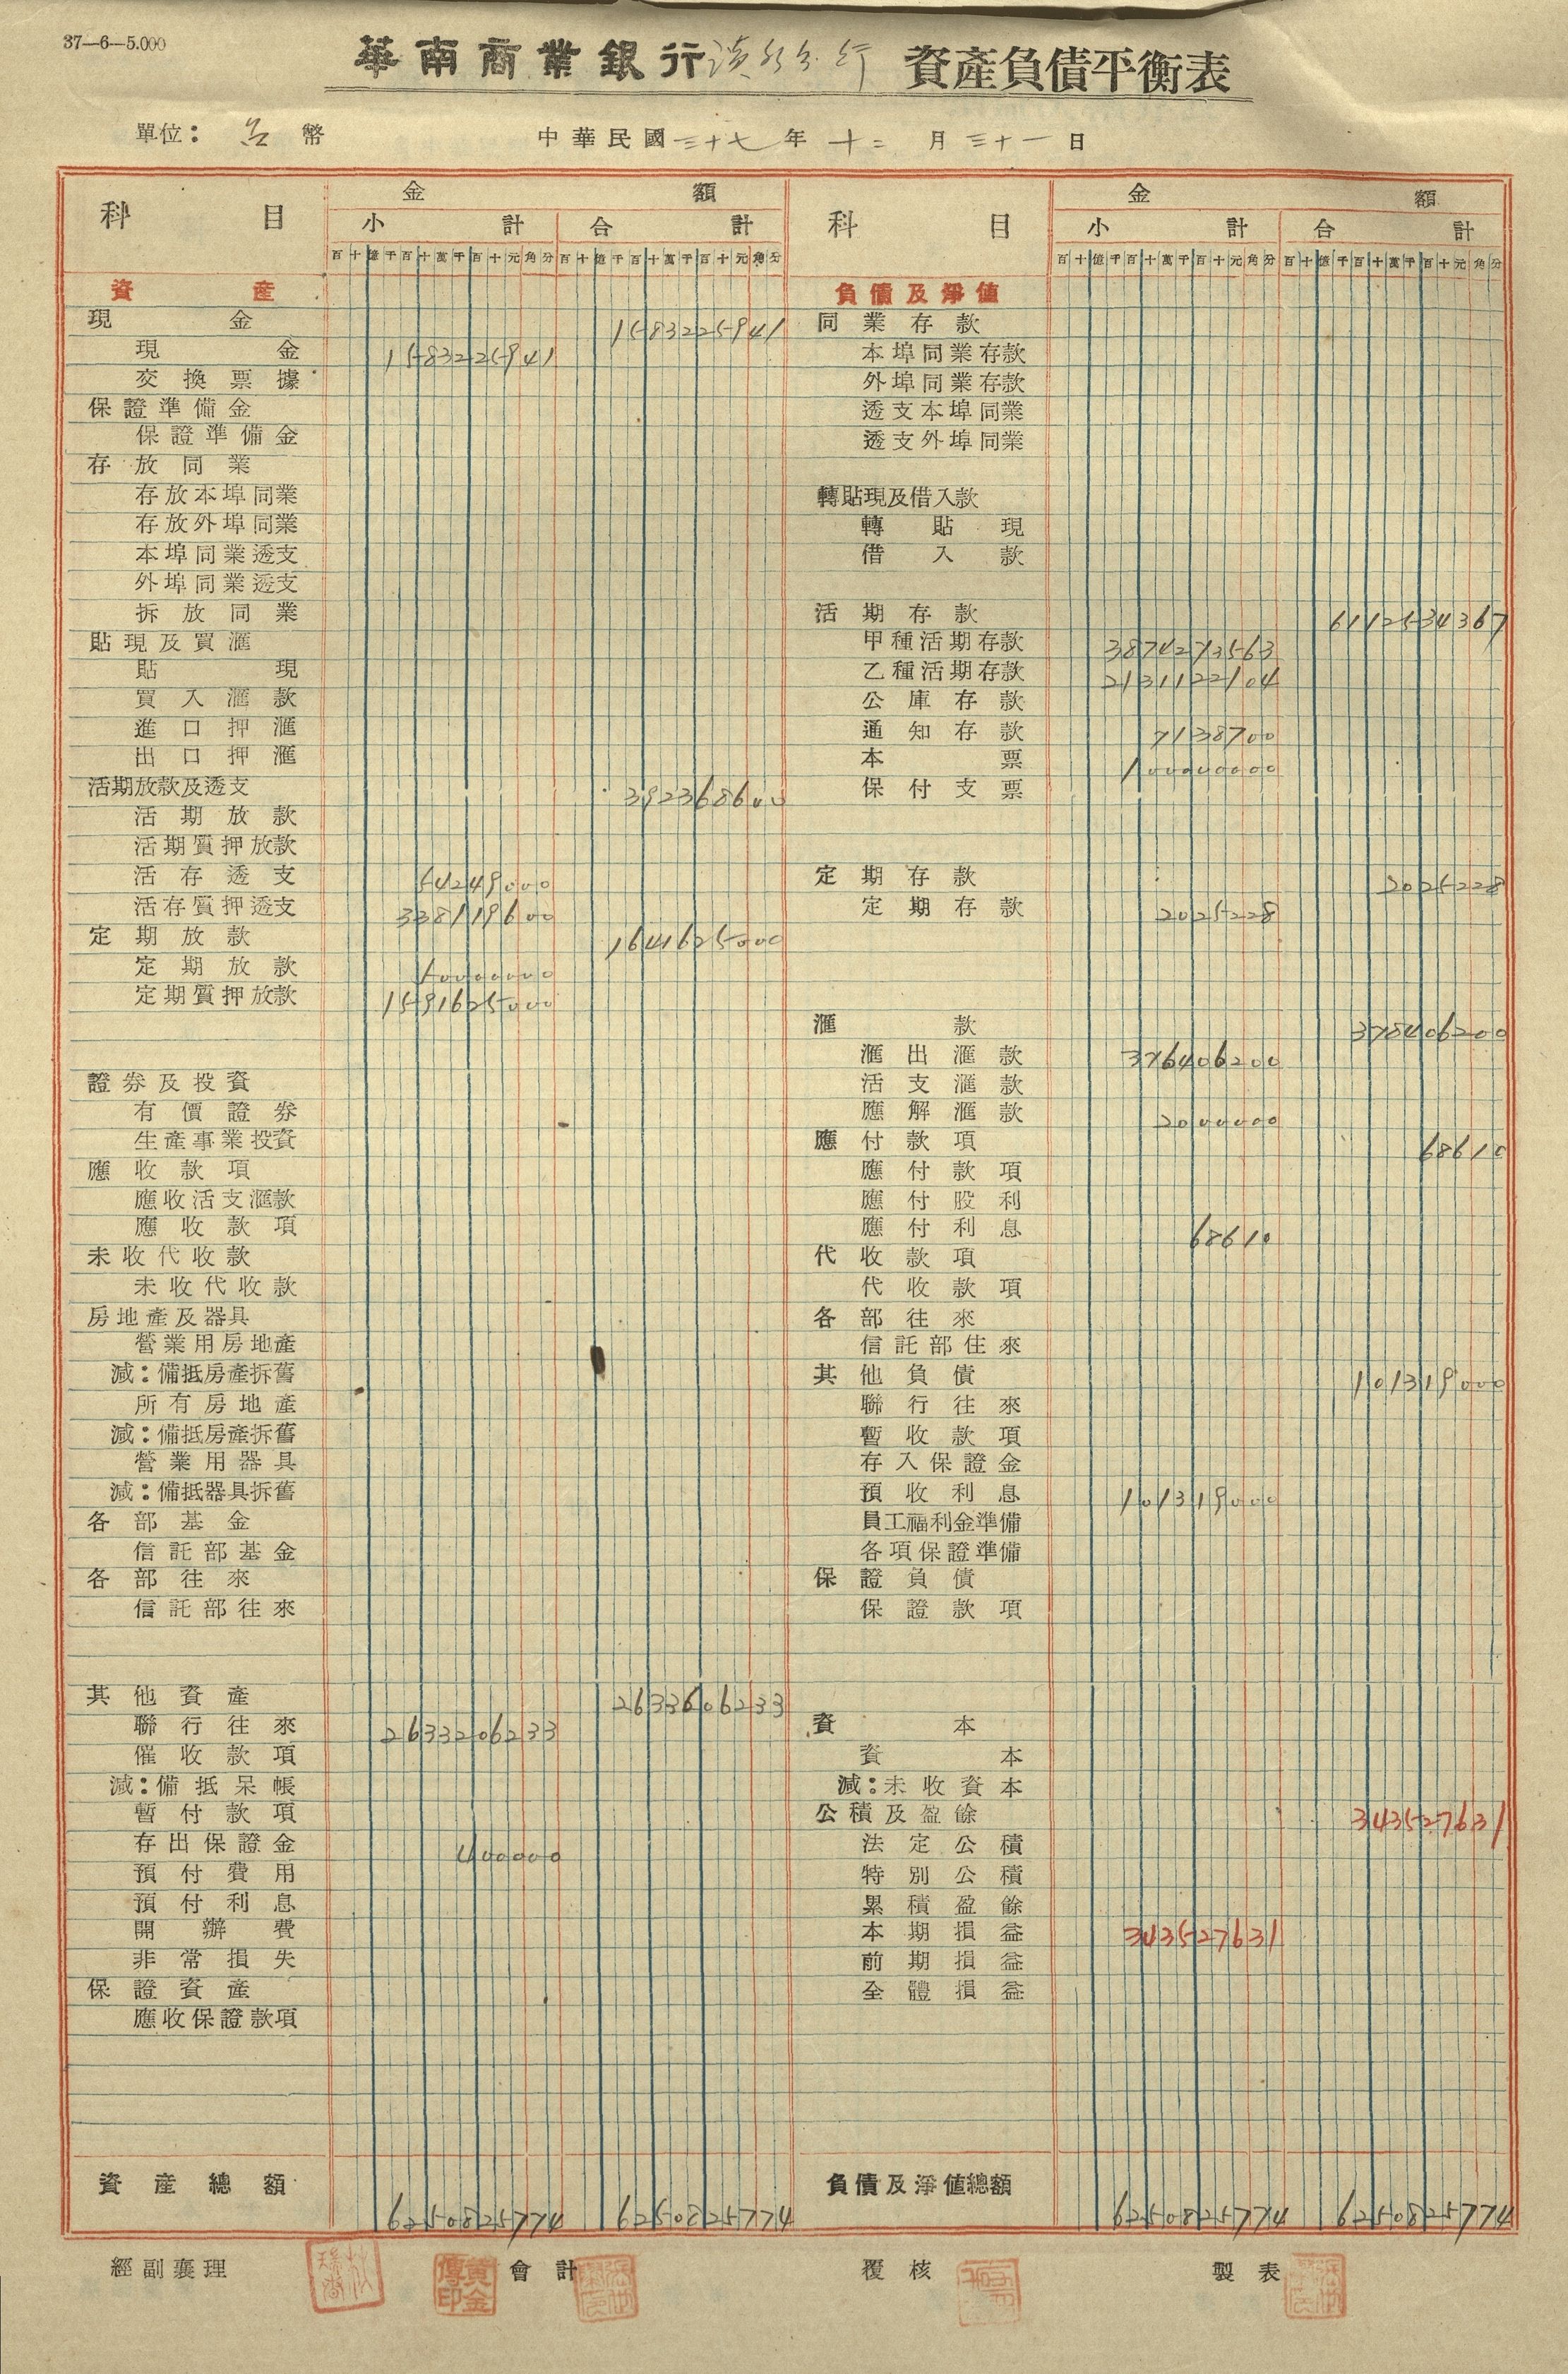 37—6—5.000
華南商業銀行 分行 資產負債平衡表
單位：台幣 中華民國三十七年十二月三十一日
科目 金額 科目 金額
小計 合計 小計 合計
百十億千百十萬千百十元角分 百十億千百十萬千百十元角分 百十億千百十萬千百十元角分 百十億千百十萬千百十元角分
資產
現金 1583225941
現金 1583225941
交換票據
保證準備金
保證準備金
存放同業
存放本埠同業
存放外埠同業
本埠同業透支
外埠同業透支
拆放同業
貼現及買滙
貼現
買入滙款
進口押滙
出口押滙
活期放款及透支 392368600
活期放款
活期質押放款
活存透支 54249000
活存質押透支 338119600
定期放款 1641625000
定期放款 50000000
定期質押放款 1591625000
證券及投資
有價證券
生產事業投資
應收款項
應收活支滙款
應收款項
未收代收款
未收代收款
房地產及器具
營業用房地產
減：備抵房產拆舊
所有房地產
減：備抵房產拆舊
營業用器具
減：備抵器具拆舊
各部基金
信託部基金
各部往來
信託部往來
其他資產 2633606233
聯行往來 2633206233
催收款項
減：備抵呆帳
暫付款項
存出保證金 400000
預付費用
預付利息
開辦費
非常損失
保證資產
應收保證款項
資產總額 6250825774 6250825774
負債及淨値
同業存款
本埠同業存款
外埠同業存款
透支本埠同業
透支外埠同業
轉貼現及借入款
轉貼現
借入款
活期存款 6112534367
甲種活期存款 3874273563
乙種活期存款 2131122104
公庫存款
通知存款 7138700
本票 100000000
保付支票
定期存款 2025228
定期存款 2025228
滙款 378406200
滙出滙款 376406200
活支滙款
應解滙款 2000000
應付款項 68610
應付款項
應付股利
應付利息 68610
代收款項
代收款項
各部往來
信託部住來
其他負債 101319000
聯行往來
暫收款項
存入保證金
預收利息 101319000
員工福利金準備
各項保證準備
保證負債
保證款項
資本
資本
減：未收資本
公積及盈餘 343527631
法定公積
特別公積
累積盈餘
本期損益 343527631
前期損益
全體損益
負債及淨値總額 6250825774 6250825774
經副襄理 會計 覆核 製表
黃金傳印